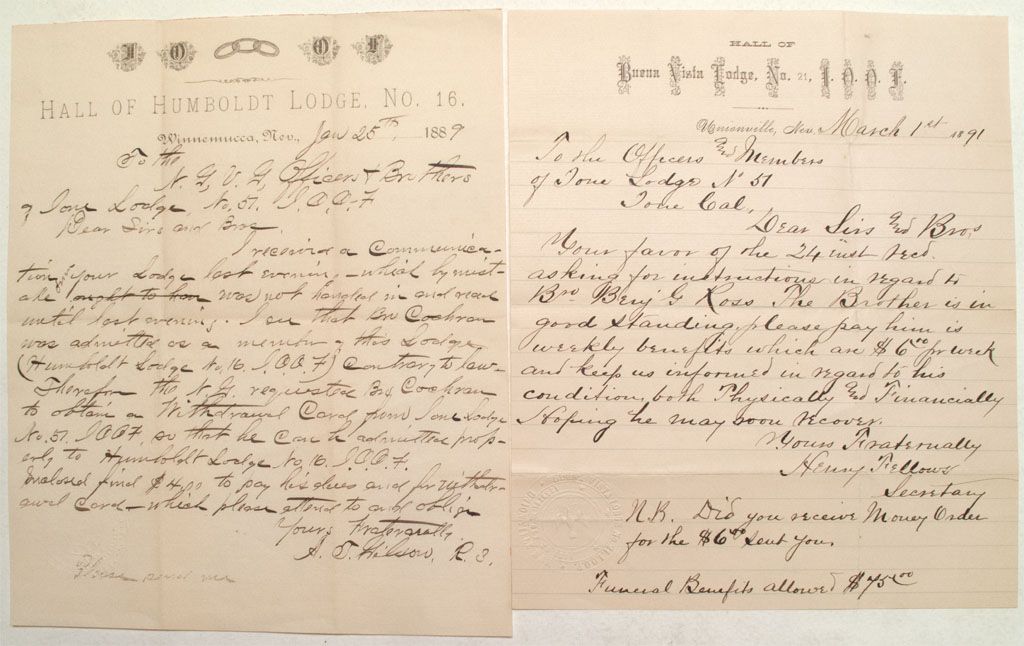 I O O F
HALL OF HUMBOLDT LODGE, NO. 16.
Winnemucca, Nev., Jan 25th, 1889
To the
N. G., V. G., Officers & Brothers
of Ione Lodge, No. 51. I.O.O.F
Dear Sirs and Bros.
I received a Communica-
tion from your Lodge last evening, - which by mist-
ake ought to have was not handed in and read
until last evening. I see that Bro Cochran
was admitted as a member of this Lodge
(Humboldt Lodge No. 16. I.O.O.F) Contrary to law -
Therefor the N.G. requested Bro Cochran
to obtain a Withdrawel Card from Ione Lodge
No. 51. I.O.O.F, so that he can be admitted prop-
erly to Humboldt Lodge No. 16. I.O.O.F.
Inclosed find $4.00 to pay his dues and for withdr-
awel Card - which please attend to and oblige
Yours Fraternally
R. S.
Please send me
HALL OF
Buena Vista Lodge, No. 21, I.O.O.F.
Unionville, Nev. March 1st 1891
To the Officers and Members
of Ione Lodge No 51
Ione Cal,
Dear Sirs and Bros
Your favor of the 24 inst recd.
asking for instructions in regard to
Bro Benj G Ross The Brother is in
good standing, please pay him is
weekly benefits which are $6.00 pr week
and keep us informed in regard to his
condition, both Physically and Financially
Hoping he may soon recover.
Yours Fraternally
Henry Fellows
Secretary
N.B. Did you receive Money Order
for the $6.00 sent you.
Funeral Benefits allowed $75.00